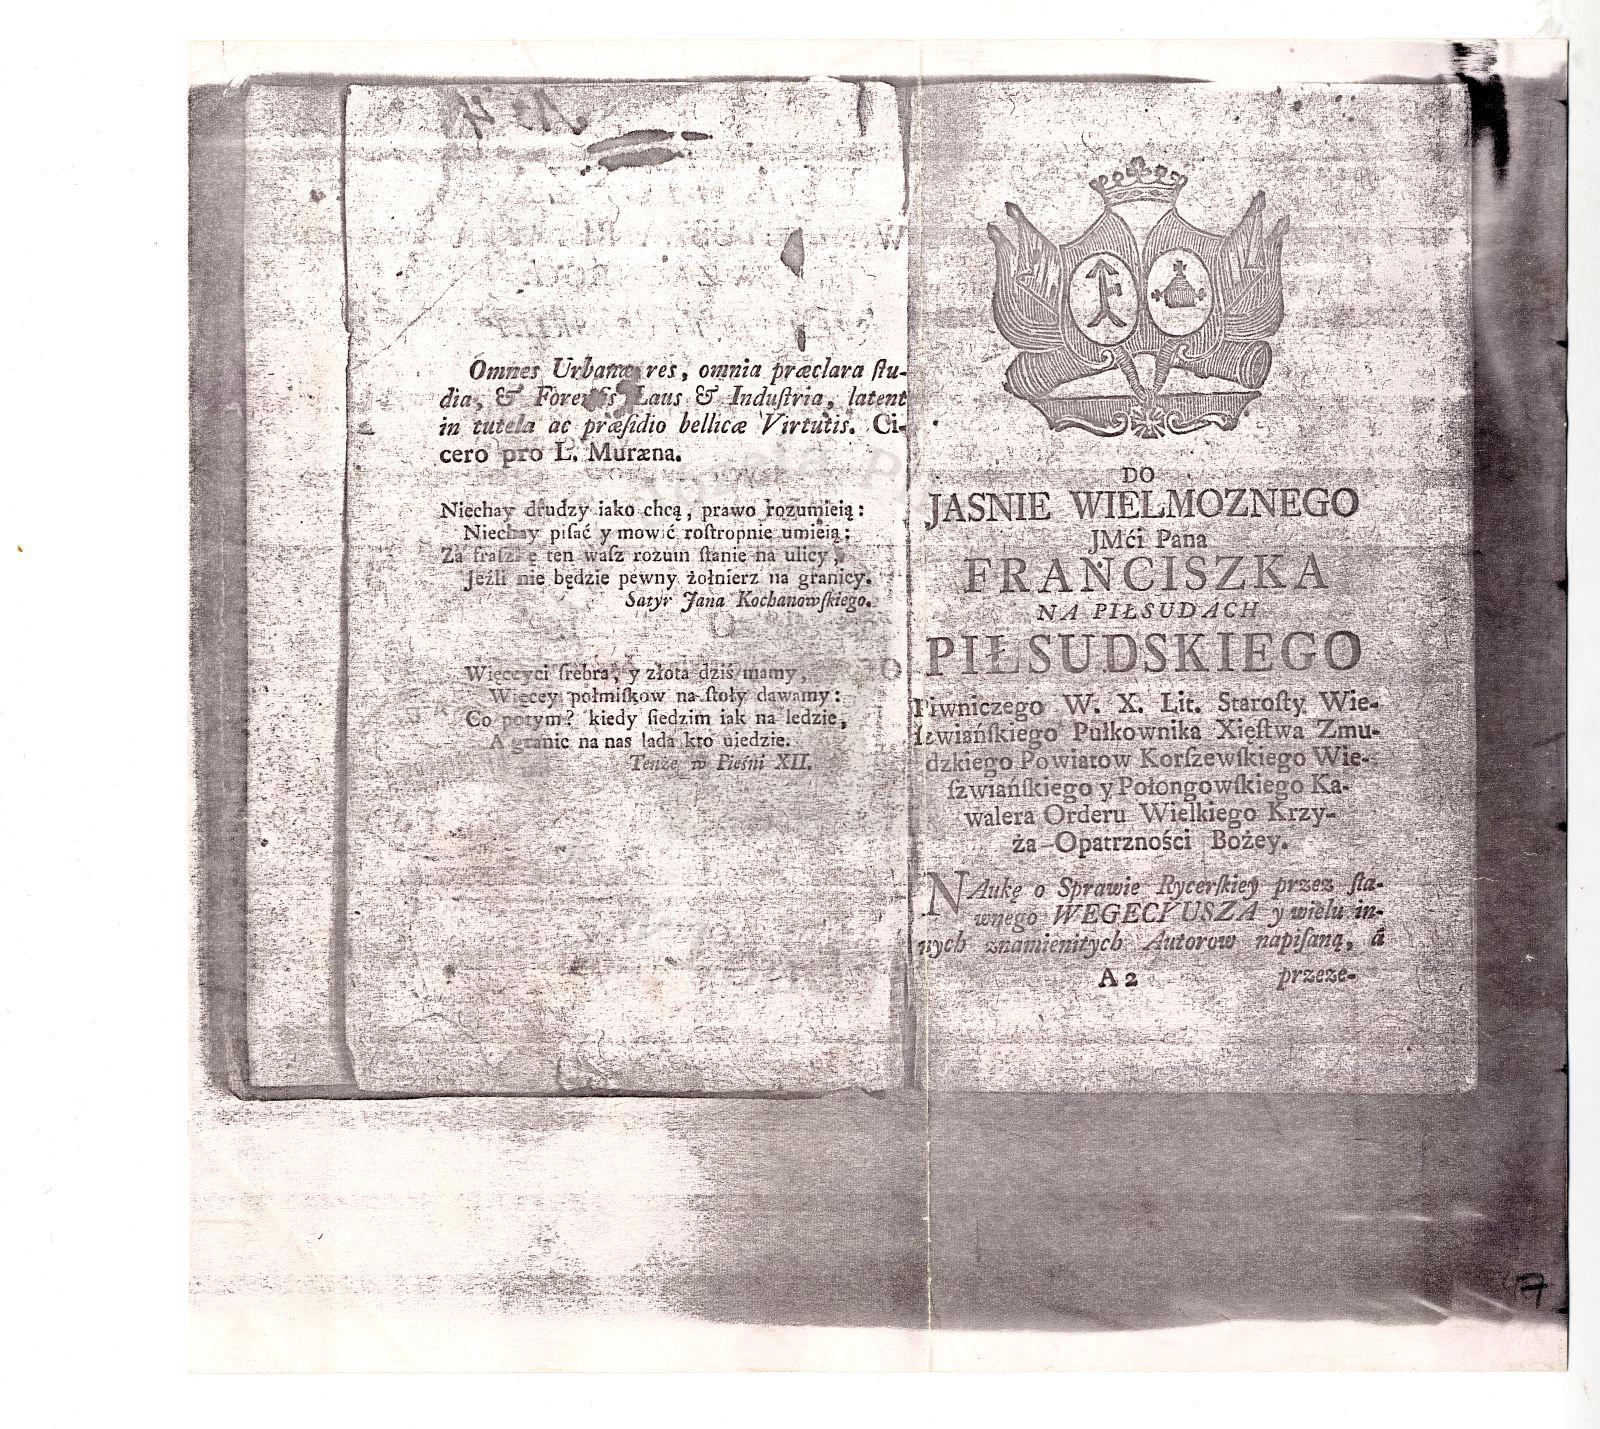 Omnes Urbanæ res, omnia præclara ſtu-
dia, & Forenſis Laus & Induſtria, latent
in tutela ac præſidio bellicæ Virtutis. Ci-
cero pro L. Muræna.
Niechay drudzy iako chcą, prawo rozumieią:
Niechay piſać y mowić roſtropnie umieią:
Za fraſzkę ten waſz rozum ſtanie na ulicy,
Jeźli nie będzie pewny żołnierz na granicy.
Satyr Jana Kochanowſkiego.
Więceyci ſrebra, y złota dziś mamy,
Więcey połmiſkow na ſtoły dawamy:
Co potym? kiedy ſiedzim iak na ledzie,
A granic na nas lada kto uiedzie.
Tenże w Pieśni XII.
DO
JASNIE WIELMOZNEGO
JMći Pana
FRANCISZKA
NA PIŁSUDACH
PIŁSUDSKIEGO
Piwniczego W. X. Lit. Staroſty Wie-
ſzwiańſkiego Pułkownika Xięſtwa Zmu-
dzkiego Powiatow Korſzewſkiego Wie-
ſzwiańſkiego y Połongowſkiego Ka-
walera Orderu Wielkiego Krzy-
ża Opatrzności Bożey.
NAukę o Sprawie Rycerſkiey przez ſła-
wnego WEGECYUSZA y wielu in-
nych znamienitych Autorow napiſaną, á
A 2 przeze-
47